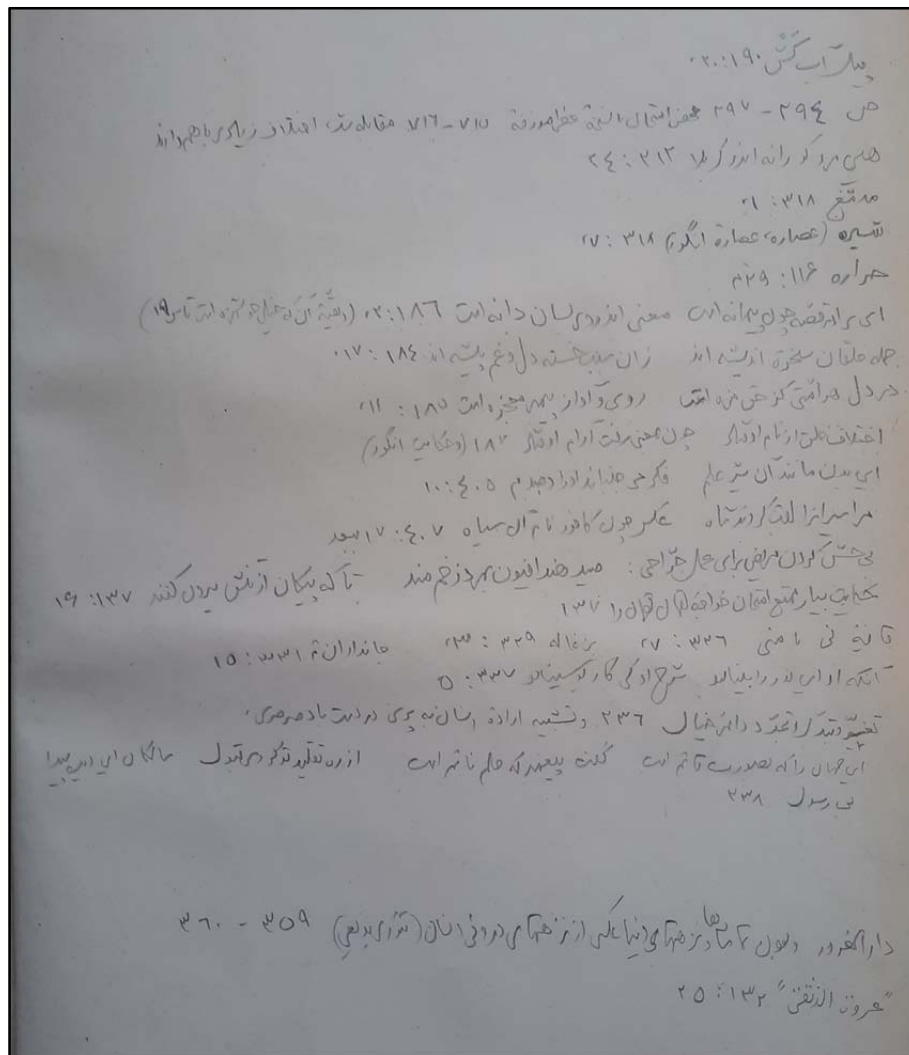 پیل آب کش ۱۹۰:۲۰
ص ۲۹۴ - ۲۹۷ بعضی نسخهٔ خطی موزهٔ ۷۱۵-۷۱۶ مقابله شد، اختلاف زیادی با هم دارند
هین مرو کورانه اندر کربلا ۳۱۲:۲۴
۳۱۸:۱
شیره (عصاره، عصارهٔ انگور) ۳۱۸:۷
حراره ۱۱۶:۲۹
ای برادر قصه چون پیمانه است معنی اندر وی بسان دانه است ۱۸۶:۲ (و بقیهٔ آن که خیلی است تا س ۱۹)
جمله خلقان سخرهٔ اندیشه اند زان سبب خسته دل و غم پیشه اند ۱۸۴:۱۷
در دل هر امتی کز حق مزه است روی و آواز پیمبر معجزه است ۱۸۵:۱۱
اختلاف خلق از نام اوفتاد چون بمعنی رفت آرام اوفتاد ۱۸۷ (حکایت انگور)
این بدن مانند آن شیر علم فکر می جنباند او را دمبدم ۴۰۵:۱۰
مر اسیران را لقب کردند شاه عکس چون کافور نام آن سیاه ۴۰۷:۱۷ ببعد
بی‌حس کردن مریض برای عمل جراحی: میدهند افیون بمرد زخم مند تا که پیکان از تنش بیرون کنند ۱۳۷:۱۹
حکایت بسیار ممتع امتحان خواجهٔ لقمان لقمان را ۱۳۷
قافیهٔ نی با منی ۳۳۶:۷ بزغاله ۳۲۹:۲۳ جانداران ۳۳۱:۱۵
آنکه او این نور را بینا بود شرح او کی کار بوسینا بود ۳۳۷:۵
تغییر و تبدل و تجدد دائمی خیال ۲۳۶ و تشبیه ارادهٔ انسان به پری در دست باد صرصری
این جهان را که بصورت قائم است گفت پیغمبر که حلم نائم است از ره تقلید تو کردی قبول سالکان این دیده پیدا
بی رسول ۲۳۸
دارالغرور و بودن تماشاها و نزهتهای دنیا عکس از نزهتهای درونی انسان (تئوری بدیعی) ۳۵۹ - ۳۶۰
"عروة الوثقی" ۱۳۲:۲۵